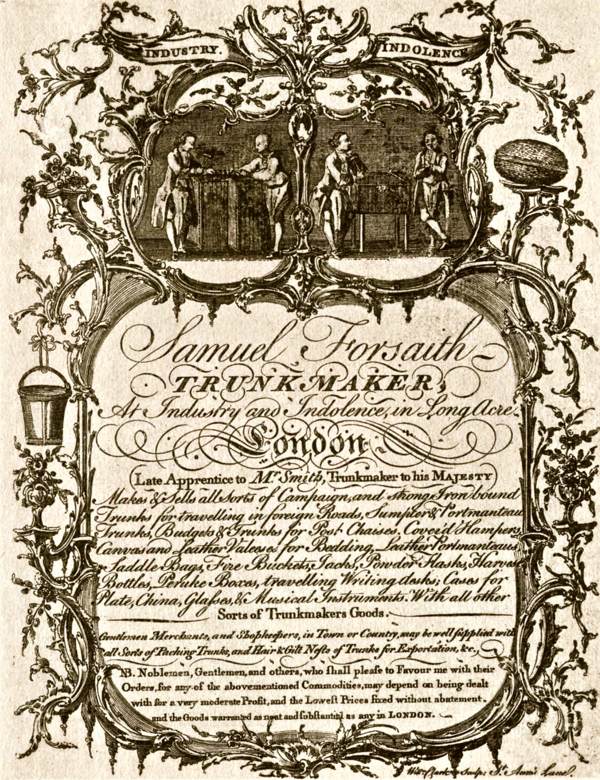 INDUSTRY.
INDOLENCE
Samuel Forsaith
TRUNKMAKER,
At Industry and Indolence, in Long Acre.
London
Late Apprentice to Mr. Smith, Trunkmaker to his MAJESTY
Makes & Sells all Sorts of Campaign, and strong Iron bound
Trunks for travelling in foreign Roads, Sumpter & Portmanteau
Trunks, Budgets & Trunks for Post Chaises, Cover'd Hampers,
Canvas and Leather Valeeses for Bedding, Leather Portmanteaus
Saddle Bags, Fire Buckets, Jacks, Powder Flasks, Harvest
Bottles, Peruke Boxes, travelling Writing desks; Cases for
Plate, China, Glasses, & Musical Instruments. With all other
Sorts of Trunkmakers Goods.
Gentlemen Merchants, and Shopkeepers, in Town or Country, may be well supplied with
all Sorts of Packing Trunks, and Hair & Gilt Nests of Trunks for Exportation, &c,
NB. Noblemen, Gentlemen, and others, who shall please to Favour me with their
Orders, for any of the abovementioned Commodities, may depend on being dealt
with for a very moderate Profit, and the Lowest Prices fixed without abatement.
and the Goods warranted as neat and substantial as any in LONDON.
Sculp. St. Ann's Lane